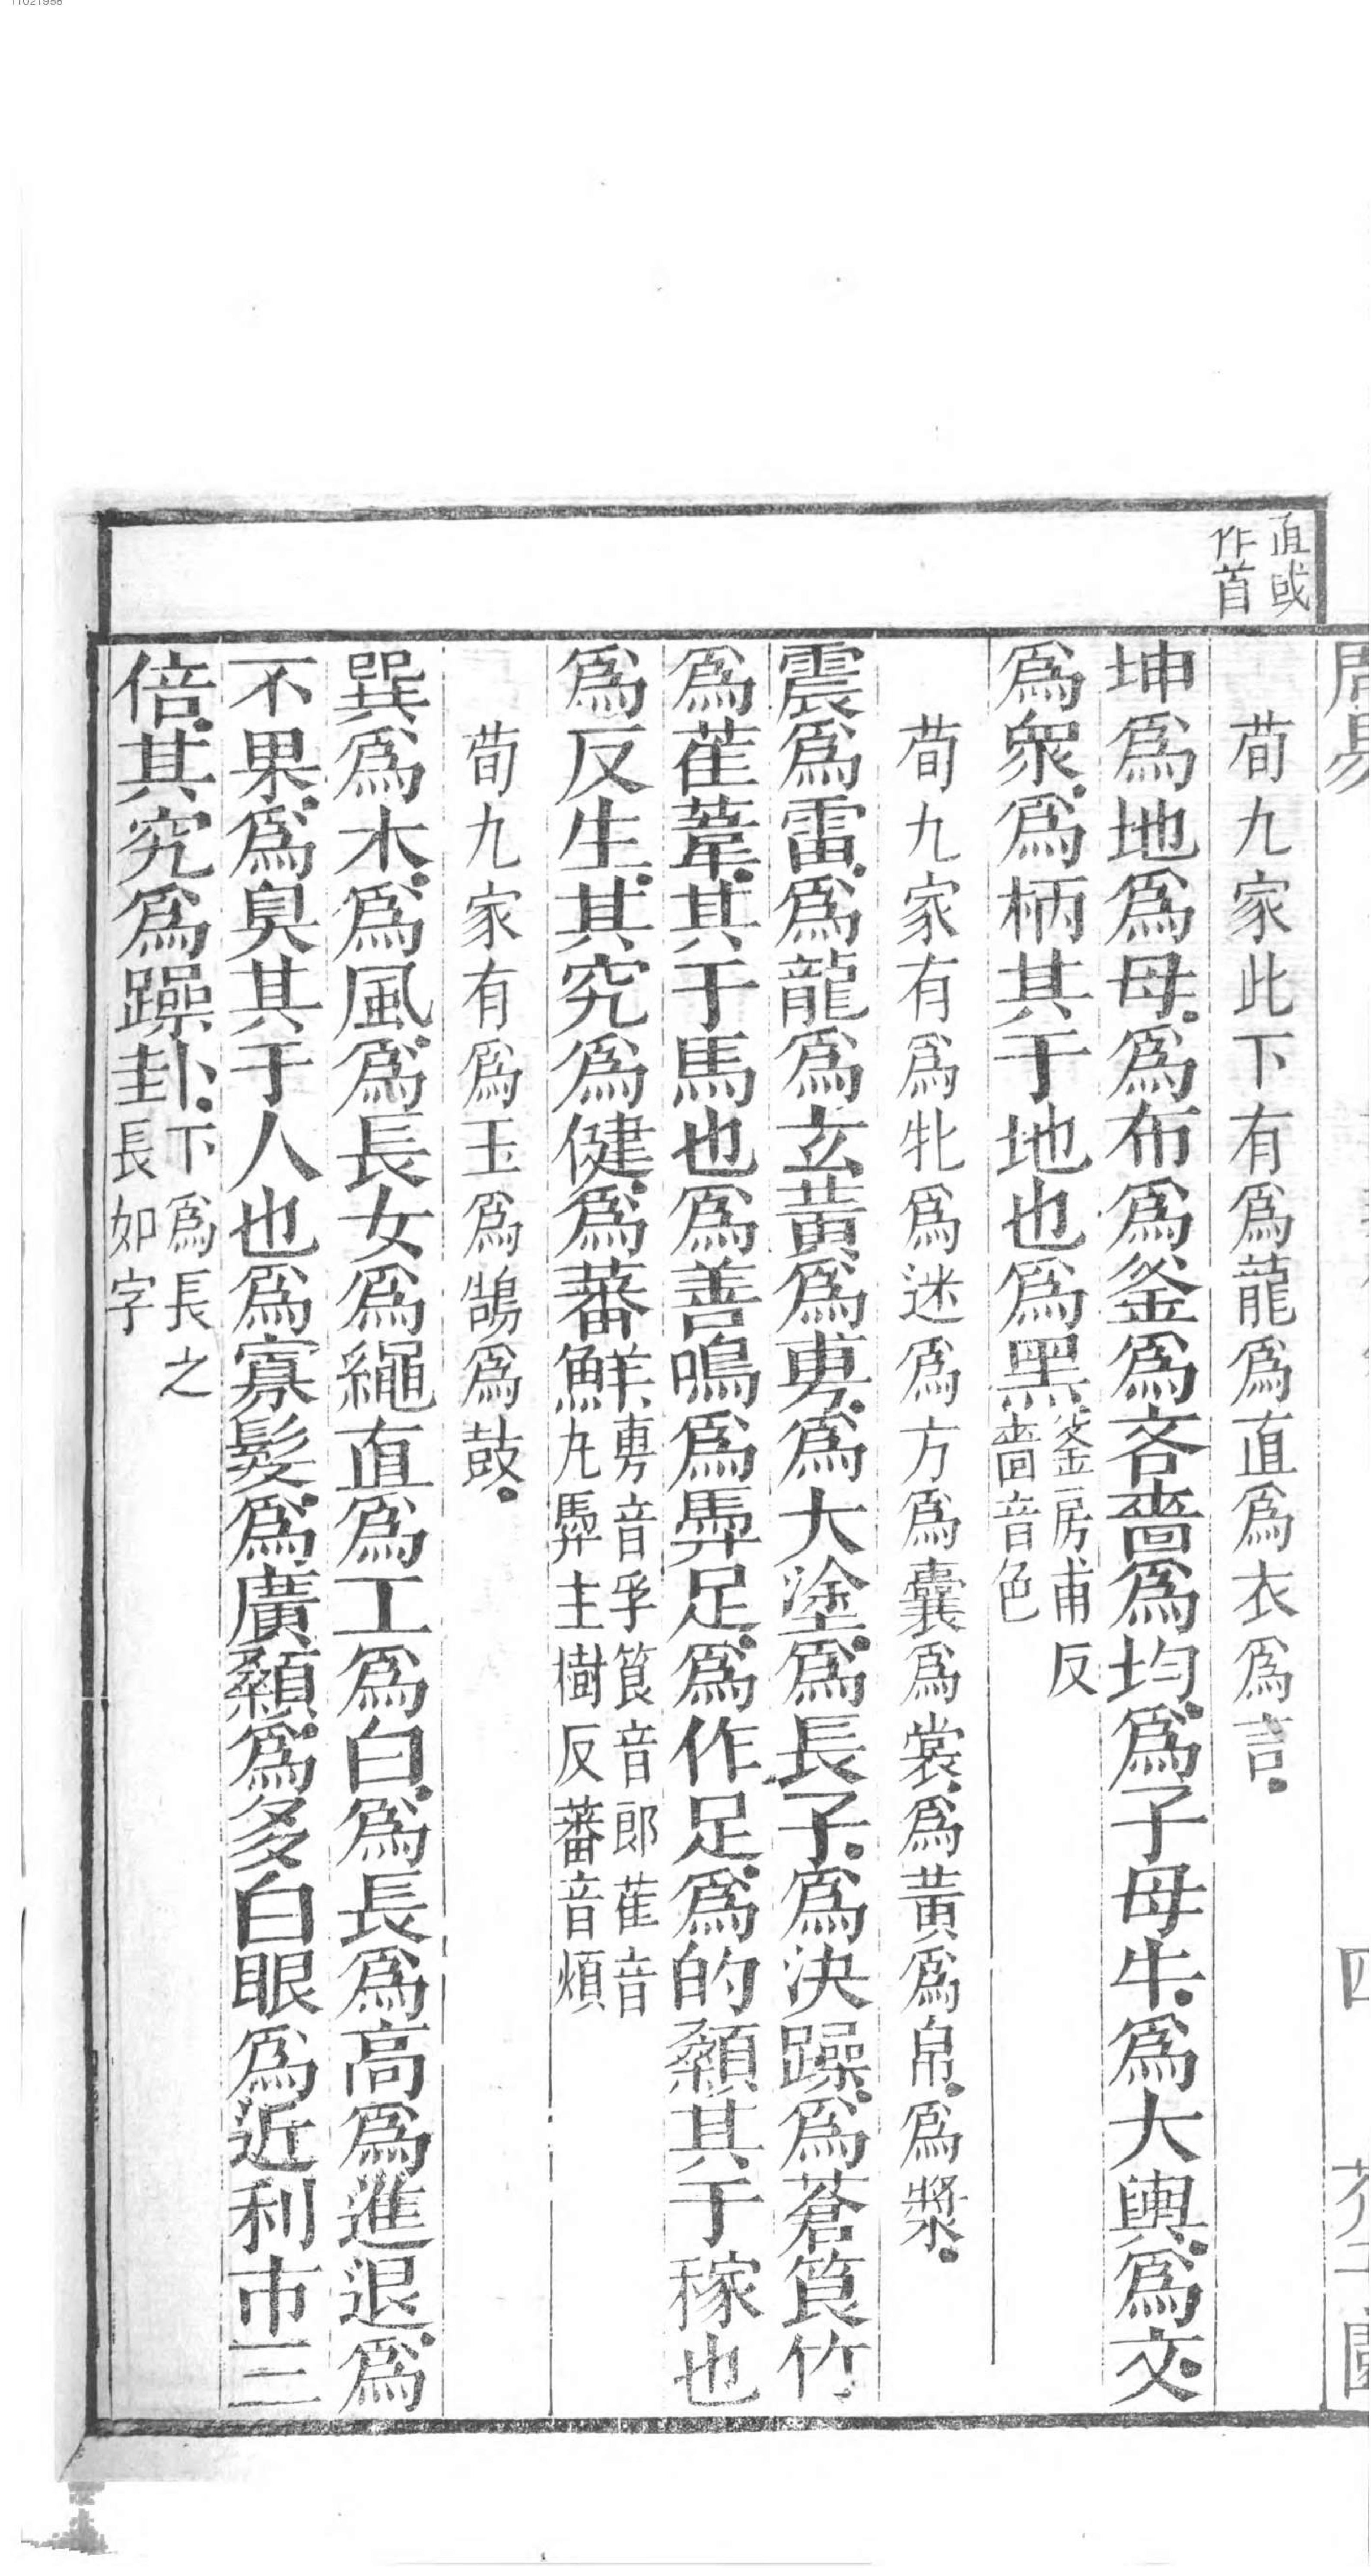 11021958
直或
作首
周易
四
荀九家此下有爲龍爲直爲衣爲言
坤爲地爲母爲布爲釜爲吝嗇爲均爲子母牛爲大輿爲文
爲衆爲柄其于地也爲黑釜房甫反
嗇音色
荀九家有爲牝爲迷爲方爲囊爲裳爲黃爲帛爲漿
震爲雷爲龍爲玄黃爲旉爲大塗爲長子爲決躁爲蒼筤竹
爲萑葦其于馬也爲善鳴爲馵足爲作足爲的顙其于稼也
爲反生其究爲健爲蕃鮮旉音孚筤音郎萑音
九馵主樹反蕃音煩
荀九家有爲玉爲鵠爲鼓
巽爲木爲風爲長女爲繩直爲工爲白爲長爲高爲進退爲
不果爲臭其于人也爲寡髮爲廣顙爲多白眼爲近利市三
倍其究爲躁卦下爲長之
長如字